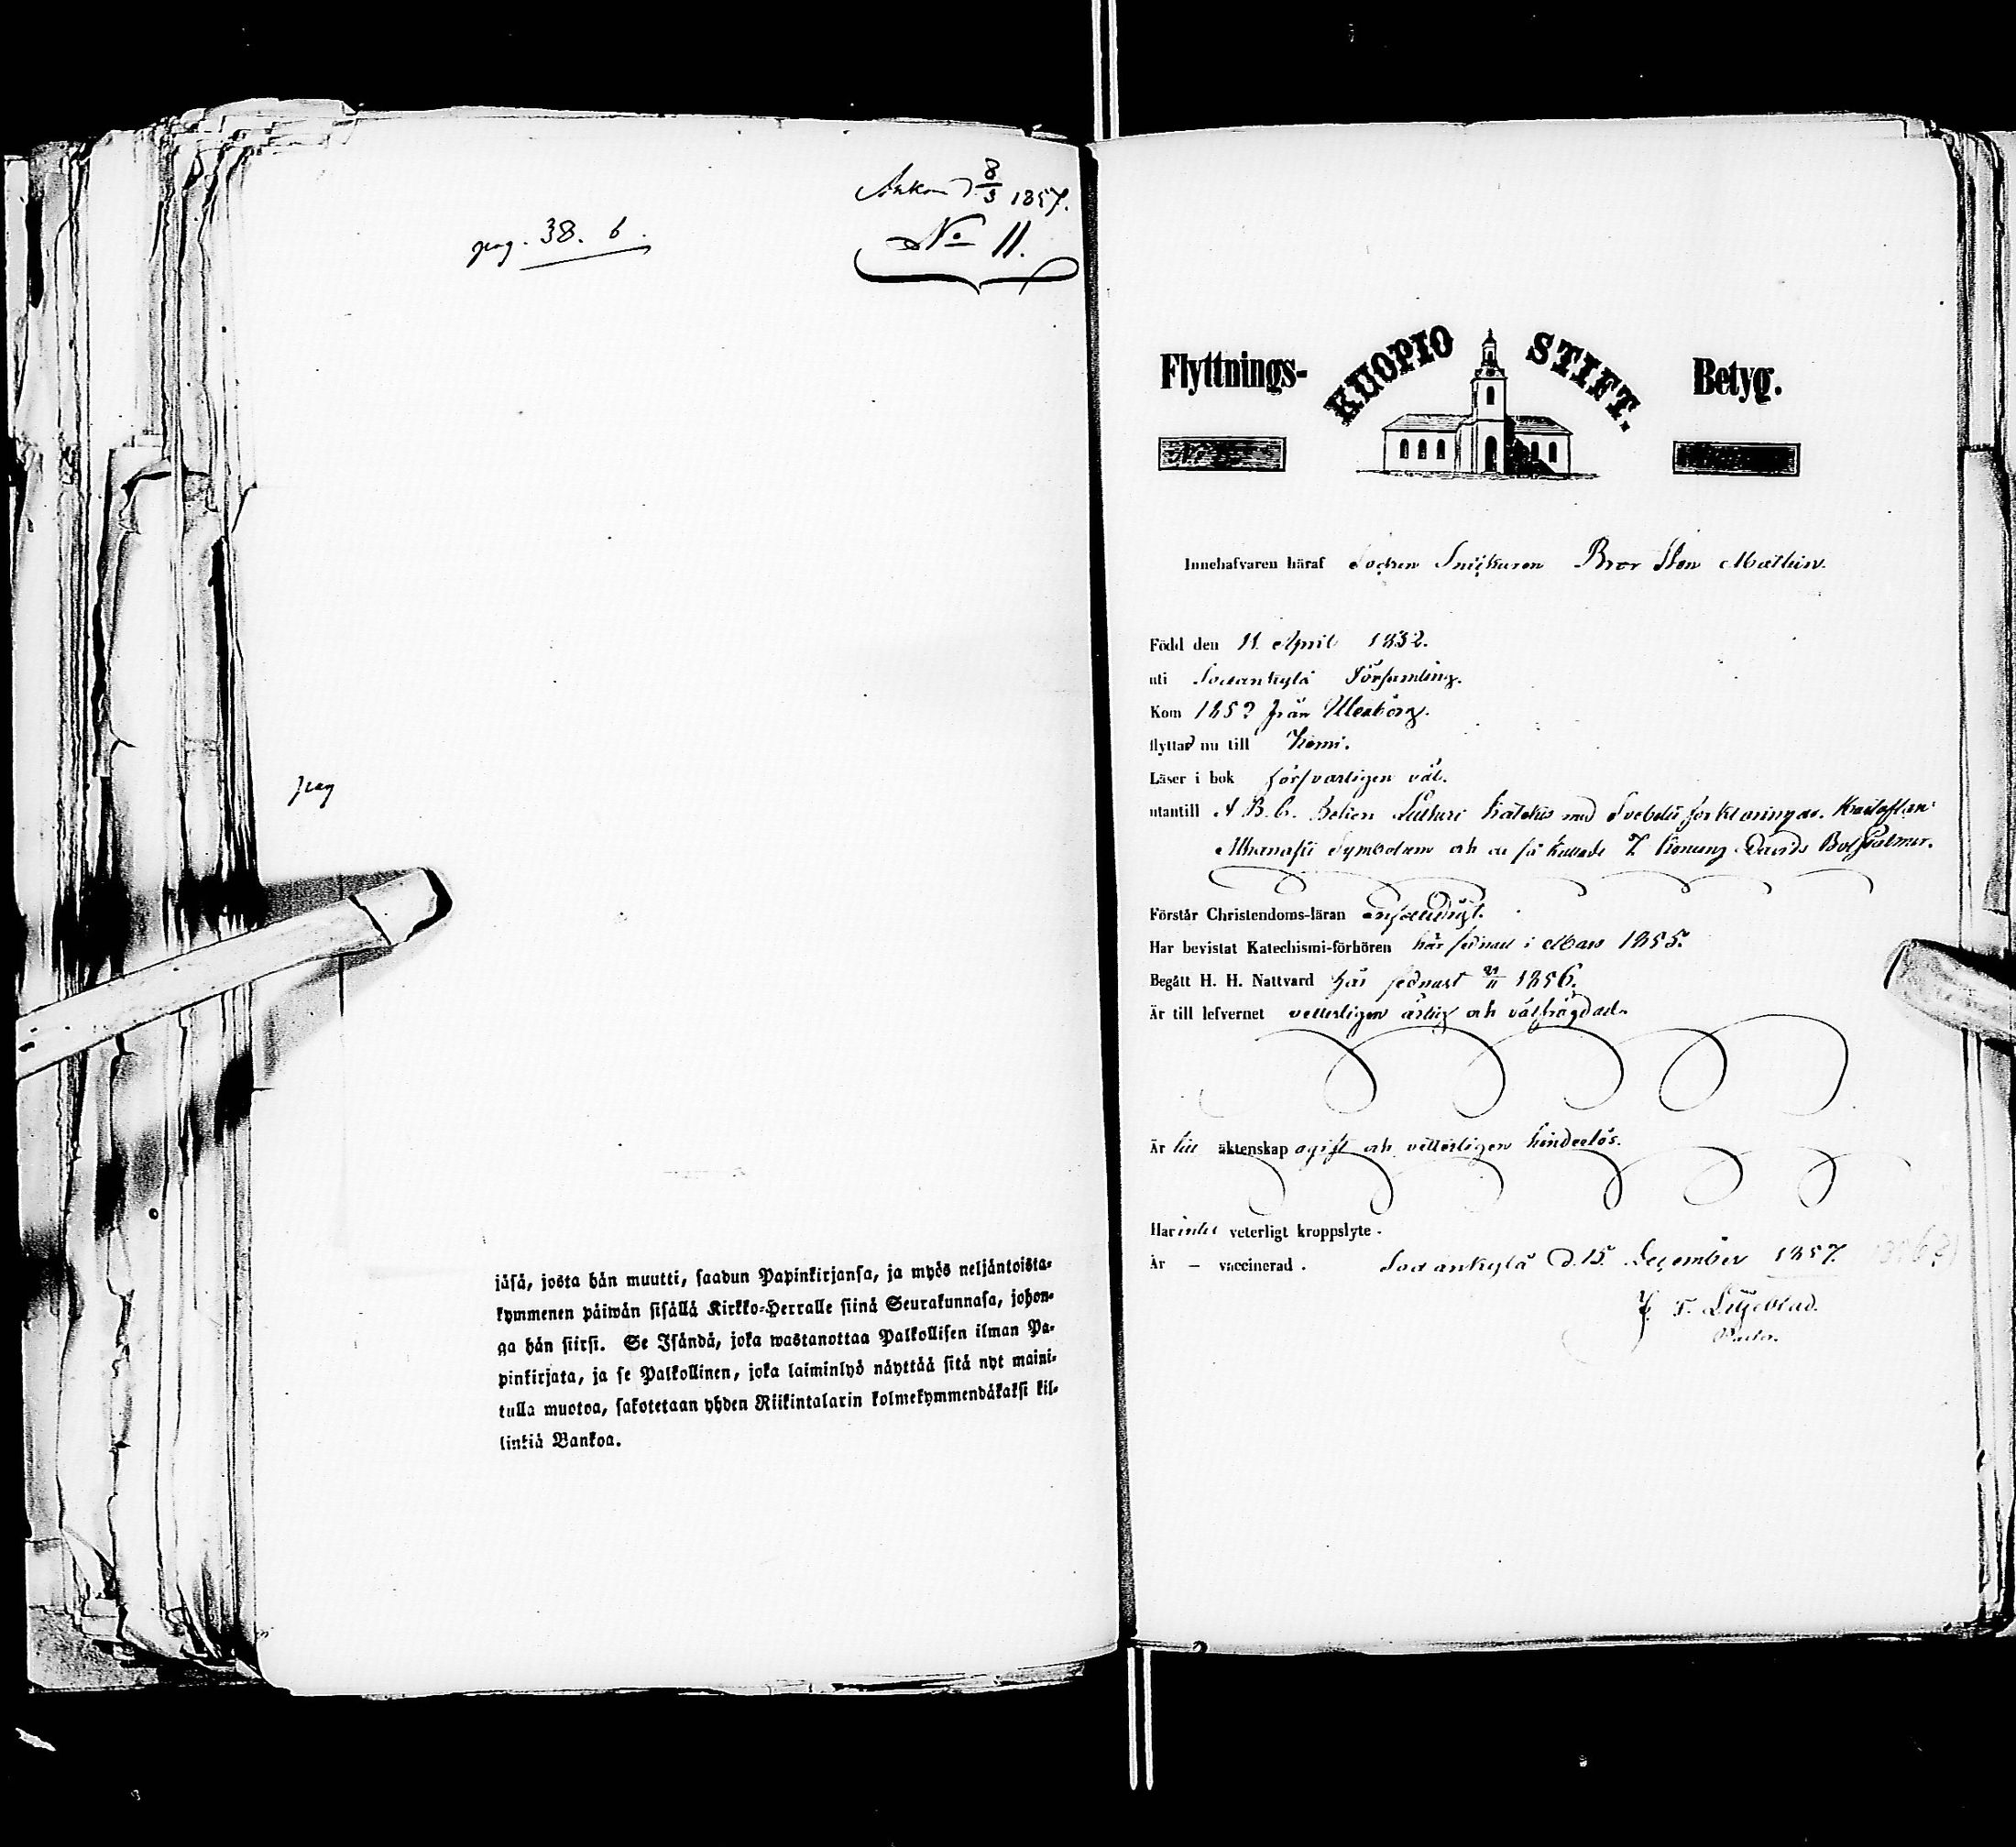 Ankom d 8/3 1857.
pag. 38. b.
No 11.
pag
jäsä, josta hän muutti, saadun Papinkirjansa, ja myös neljäntoista-
kymmenen päiwän sisällä Kirkko-Herralle siinä Seurakunnasa, johon-
ga hän siirsi. Se Isändä, joka wastanottaa Palkollisen ilman Pa-
pinkirjata, ja se Palkollinen, joka laiminlyö näyttää sitä nyt maini-
tulla muotoa, sakotetaan yhden Riikintalarin kolmekymmendäkaksi kil-
linkiä Bankoa.
Flyttnings- KUOPIO STIFT. Betyg.
Innehafvaren häraf Socken Snickaren Bror Sten Mathlin.
Född den 11 April 1832.
uti Sodankylä Församling.
Kom 185? från Uleåborg.
flyttad nu till Kemi.
Läser i bok försvarligen väl.
utantill A.B.C. Boken Lutheri Kateches med Svebelii förklaringar. Hustaflan
Athanasii Symbolum och de så kallade 7 Konung Davids Bot Psalmer.
Förstår Christendoms-läran
Har bevistat Katechismi-förhören här sednast i Mars 1855.
Begått H. H. Nattvard här sednast 1856.
Är till lefvernet vetterligen ärlig och välfrägdad.
Är till äktenskap ogift och vetterligen hinderlös.
Har intet veterligt kroppslyte.
Är - vaccinerad. Sodankylä d. 15 December 1857.
J. F. Liljeblad.
Pastor.